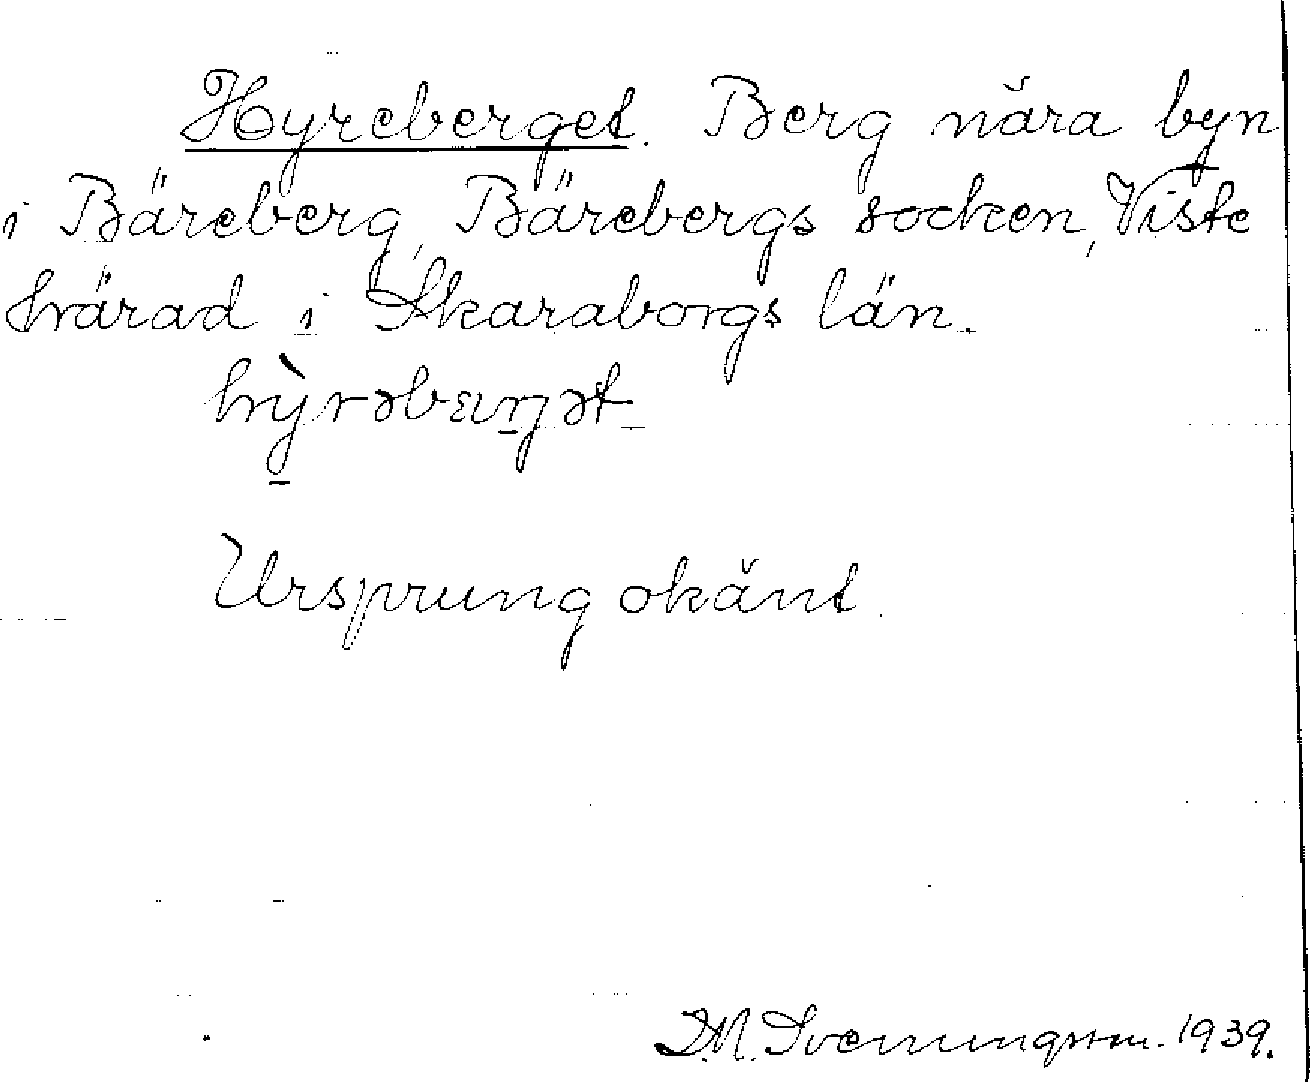 Hyreberget. Berg nära byn
i Bäreberg, Bärebergs socken, Viste
härad i Skaraborgs län.
hỳrəbærjət
Ursprung okänt.
D.M. Svenungsson. 1939.